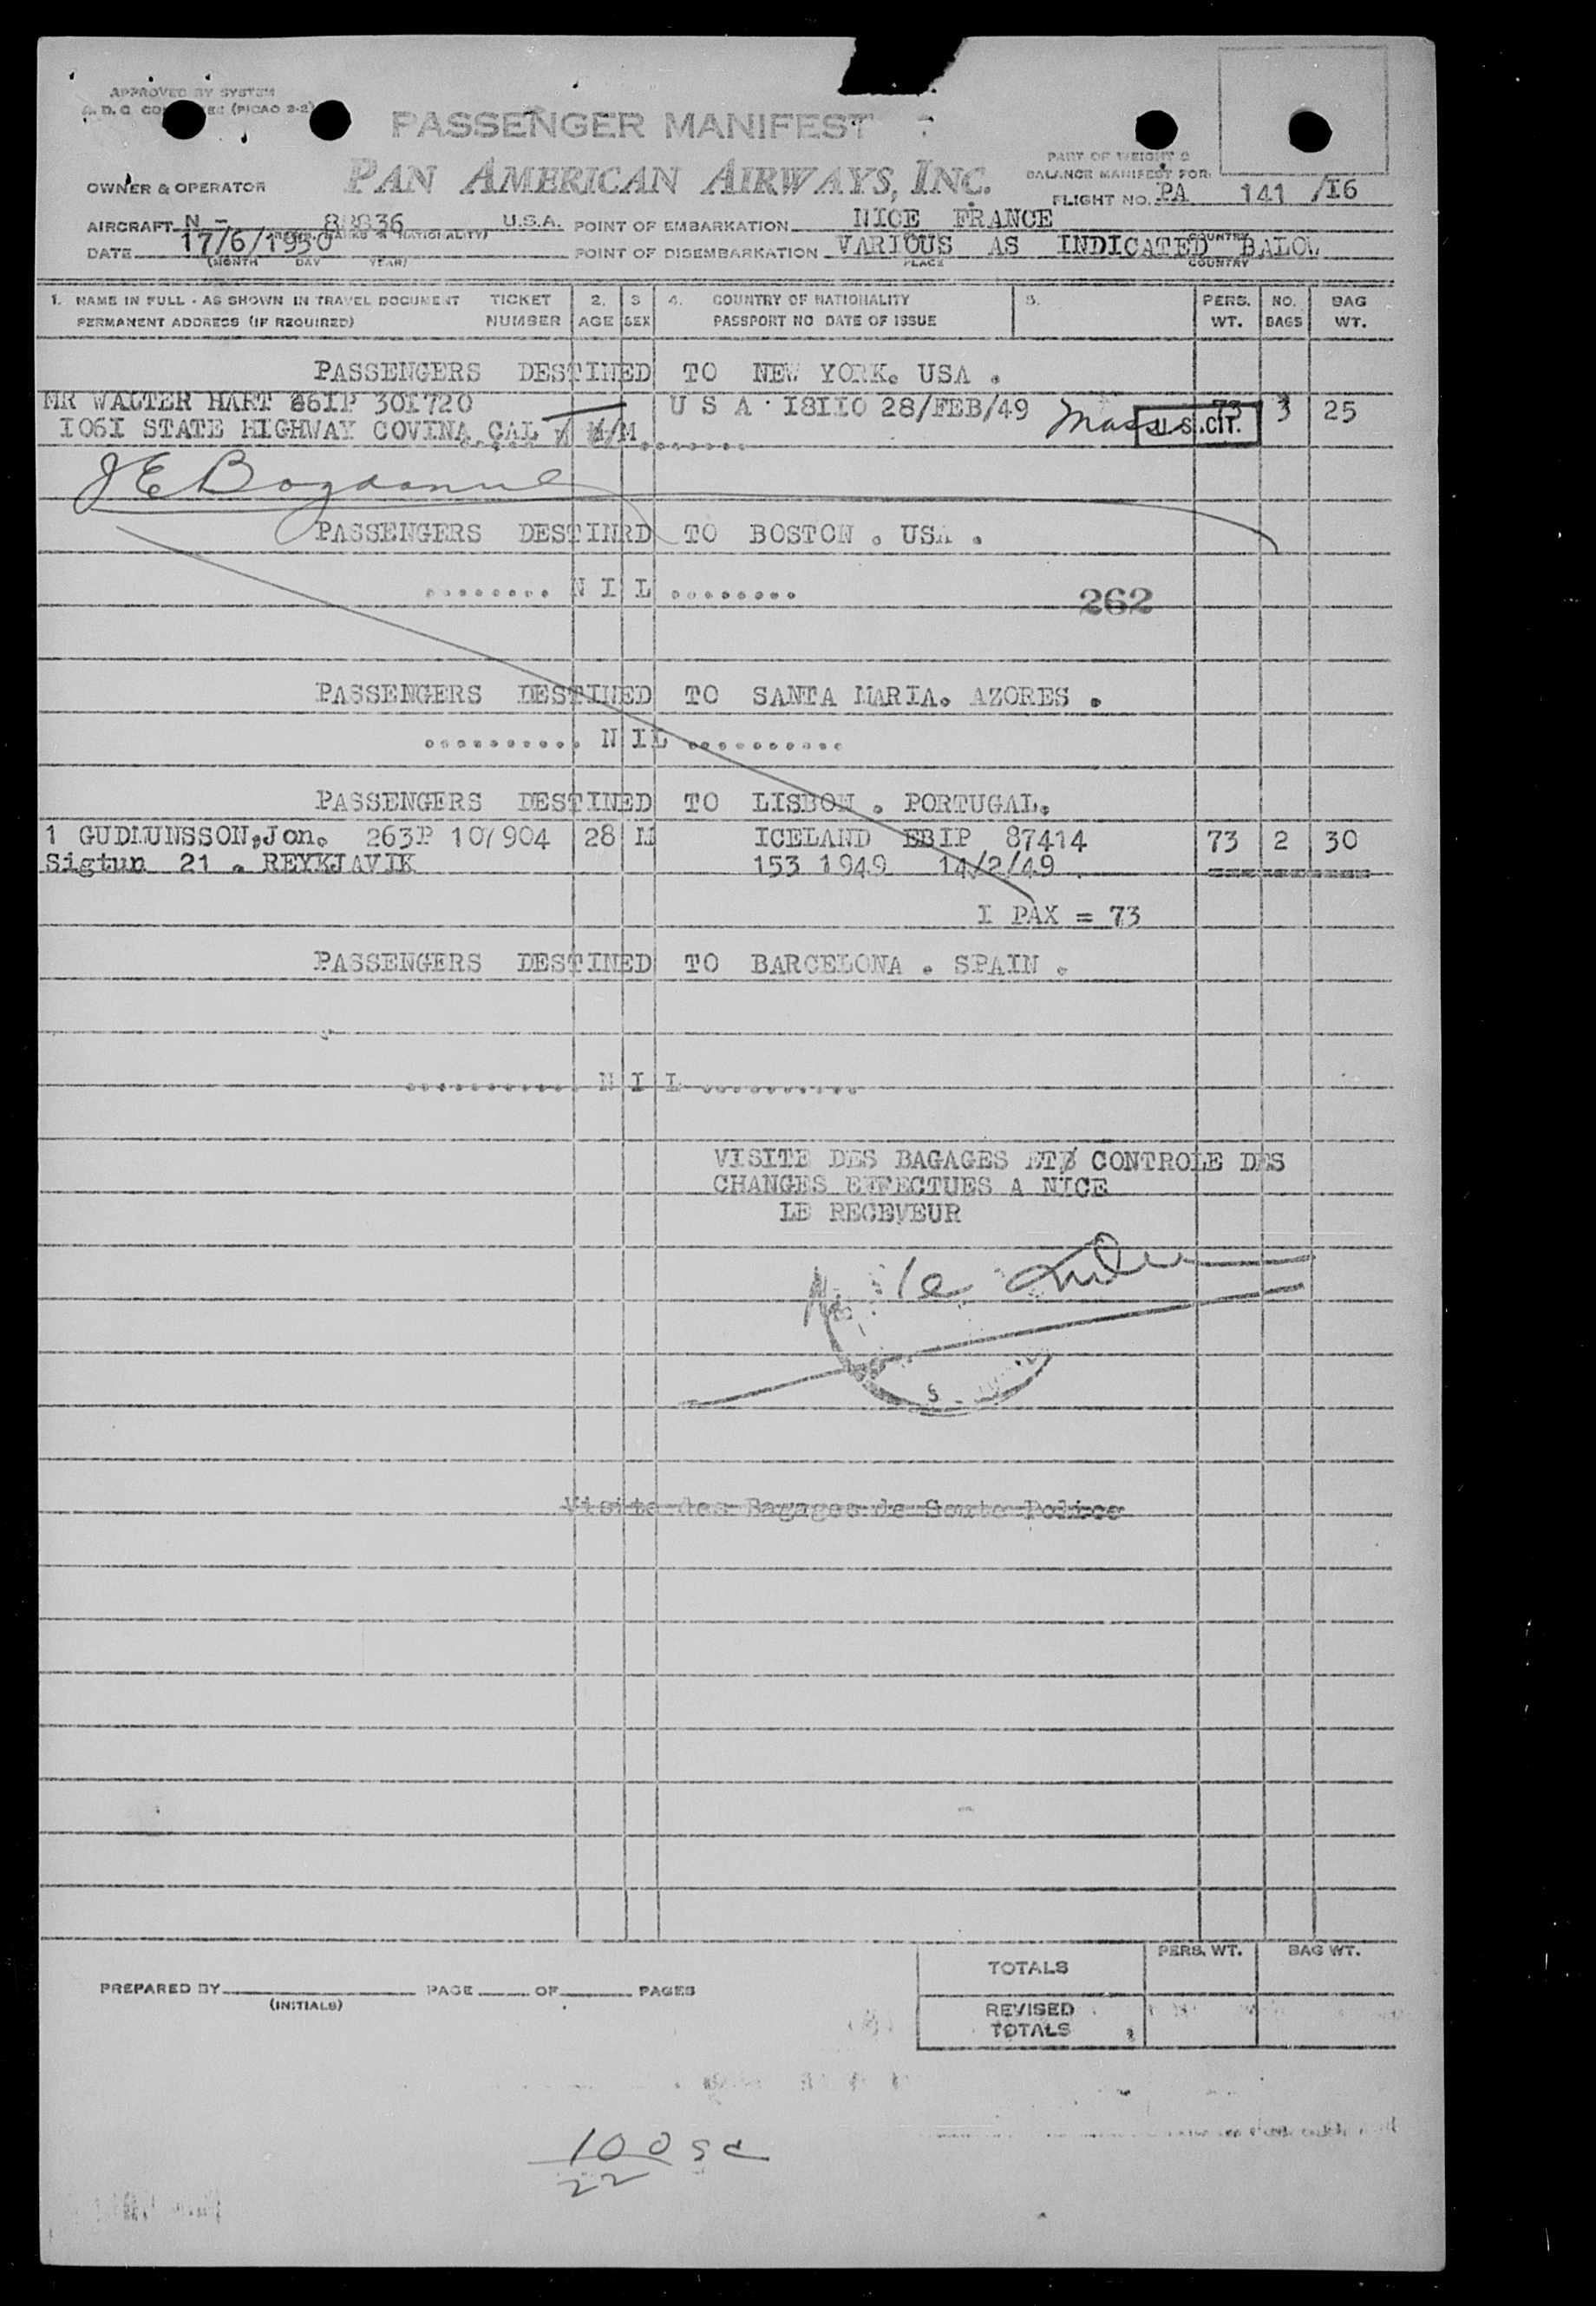 APPROVED BY SYSTEM
(PICAO 2-2)
PASSENGER MANIFEST
PAN AMERICAN AIRWAYS, INC.
PART OF WEIGHT &
BALANCE MANIFEST FOR:
OWNER & OPERATOR
FLIGHT NO. PA 141 /I6
AIRCRAFT N - U.S.A. POINT OF EMBARKATION NICE FRANCE
DATE 17/6/1950 POINT OF DISEMBARKATION VARIOUS AS INDICATED BALOW
(MONTH DAY YEAR) PLACE COUNTRY
1. NAME IN FULL - AS SHOWN IN TRAVEL DOCUMENT TICKET 2. 3 4. COUNTRY OF NATIONALITY 5. PERS. NO. BAG
PERMANENT ADDRESS (IF REQUIRED) NUMBER AGE SEX PASSPORT NO DATE OF ISSUE WT. BAGS WT.
PASSENGERS DESTINED TO NEW YORK. USA .
MR WALTER HART 86IP 30I720 U S A I8II0 28/FEB/49 Mass U.S.CIT. 73 3 25
I06I STATE HIGHWAY COVINA CAL M
PASSENGERS DESTINRD TO BOSTON . USA .
........ N I L ........
262
PASSENGERS DESTINED TO SANTA MARIA. AZORES .
.......... N IL ...........
PASSENGERS DESTINED TO LISBON . PORTUGAL.
1 GUDMUNSSON,Jon. 263P 107904 28 M ICELAND EBIP 87414 73 2 30
Sigtun 21 . REYKJAVIK 153 1949 14/2/49
I PAX = 73
PASSENGERS DESTINED TO BARCELONA . SPAIN .
........... N I L ..........
VISITE DES BAGAGES ET CONTROLE DES
CHANGES EFFECTUES A NICE
LE RECEVEUR
Visite des Bagages de Soute Police
TOTALS PERS. WT. BAG WT.
PREPARED BY PAGE OF PAGES
(INITIALS)
REVISED
TOTALS
100
22